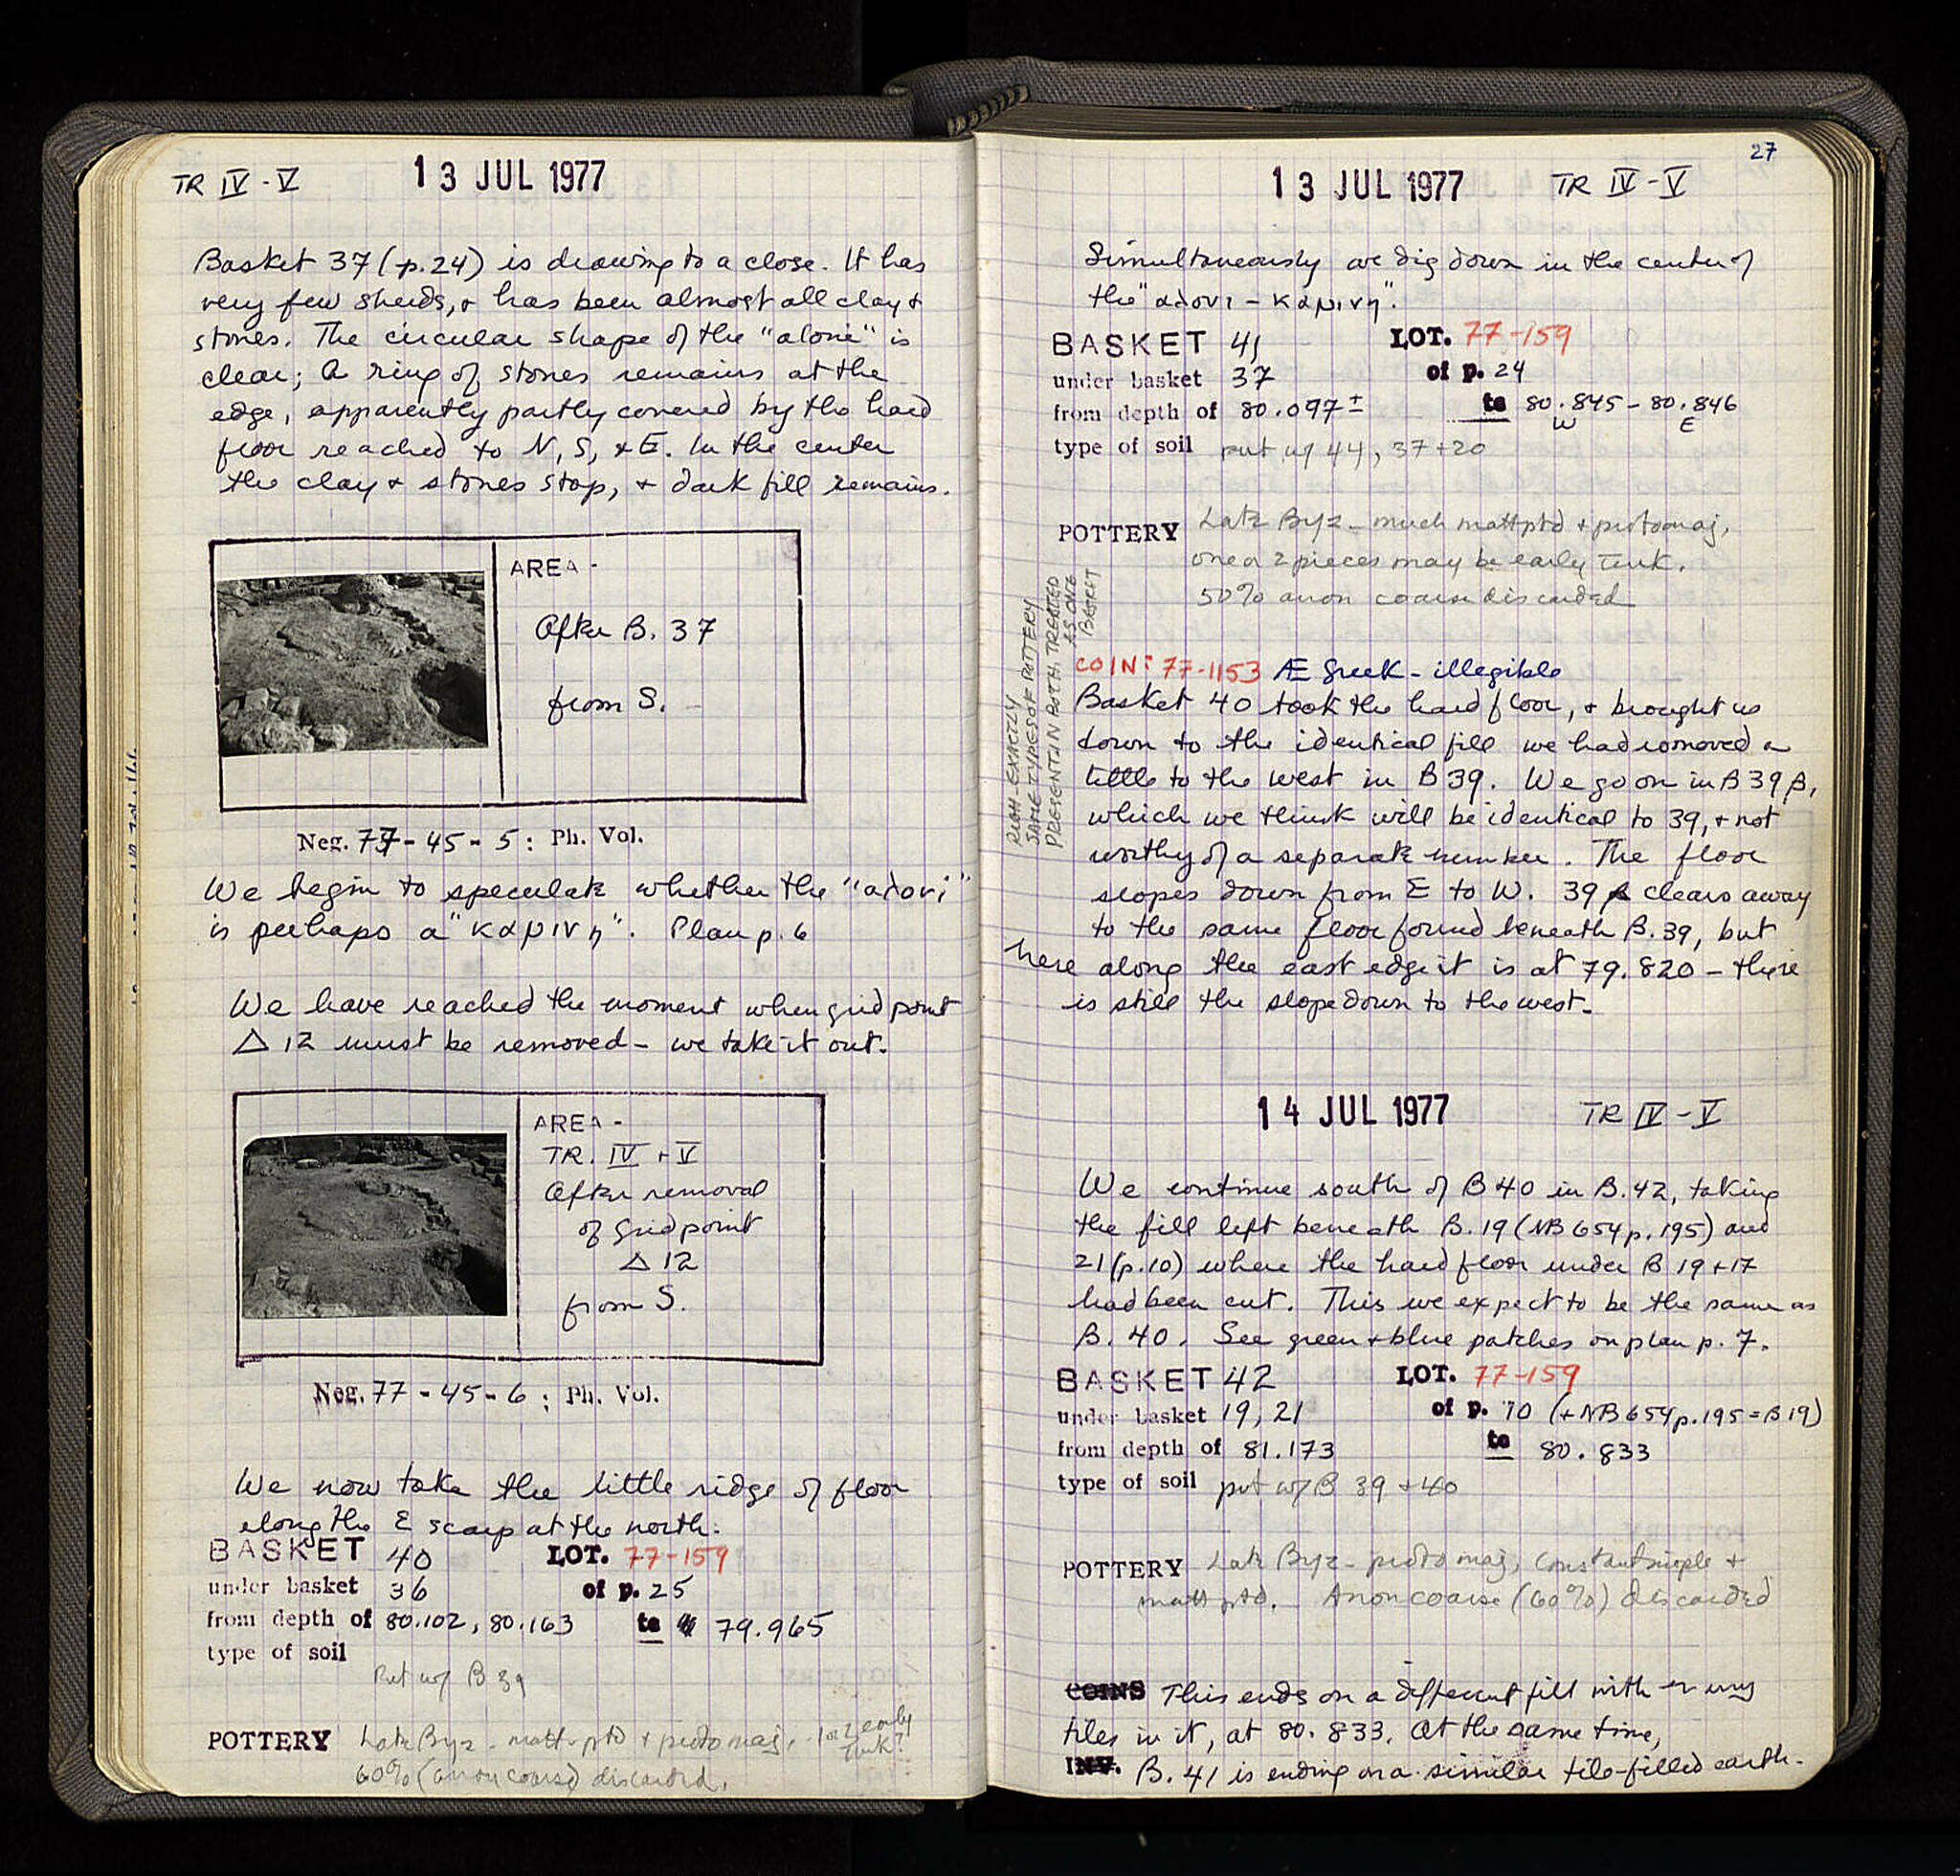 TR IV - V 13 JUL 1977
Basket 37 (p. 24) is drawing to a close. It has
very few sherds, + has been almost all clay +
stones. The circular shape of the "aloni" is
clear; a ring of stones remains at the
edge, apparently partly covered by the hard
floor reached to N, S, + E. In the center
the clay + stones stop, + dark fill remains.
AREA -
After B. 37
from S.
Neg. 77 - 45 - 5 : Ph. Vol.
We begin to speculate whether the "αλονι"
is perhaps a "καμινη". Plan p. 6
We have reached the moment when grid point
Δ 12 must be removed - we take it out.
AREA -
TR. IV + V
After removal
of grid point
Δ 12
from S.
Neg. 77 - 45 - 6 : Ph. Vol.
We now take the little ridge of floor
along the E scarp at the north.
BASKET 40 LOT. 77-159
under basket 36 of p. 25
from depth of 80.102, 80.163 to 79.965
type of soil
Put w/ B 39
POTTERY Late Byz - matt-ptd + proto maj, 1 or 2 early Turk?
60% (anon coarse) discarded.
27
13 JUL 1977 TR IV - V
Simultaneously we dig down in the center of
the "αλονι - καμινη".
BASKET 41 LOT. 77-159
under basket 37 of p. 24
from depth of 80.097± to 80.845 - 80.846
W E
type of soil put w/ 44, 37+20
POTTERY Late Byz - much mattptd + protomaj,
one or 2 pieces may be early Turk.
50% anon coarse discarded
EXACTLY
SAME TYPES OF POTTERY
PRESENT IN BOTH, TREATED
AS ONE
BASKET
COIN: 77-1153 Æ Greek - illegible
Basket 40 took the hard floor, + brought us
down to the identical fill we had removed a
little to the west in B 39. We go on in B 39 β,
which we think will be identical to 39, + not
worthy of a separate number. The floor
slopes down from E to W. 39 β clears away
to the same floor found beneath B. 39, but
here along the east edge it is at 79.820 - there
is still the slope down to the west.
14 JUL 1977 TR IV - V
We continue south of B 40 in B. 42, taking
the fill left beneath B. 19 (NB 654 p. 195) and
21 (p. 10) where the hard floor under B 19 + 17
had been cut. This we expect to be the same as
B. 40. See green + blue patches on plan p. 7.
BASKET 42 LOT. 77-159
under basket 19, 21 of p. 10 (+ NB 654 p. 195 = B 19)
from depth of 81.173 to 80.833
type of soil put w/ B 39 + 40
POTTERY Late Byz - proto maj, Constantinople +
matt ptd. Anon coarse (60%) discarded
COINS This ends on a different fill with many
tiles in it, at 80.833. At the same time,
INV. B. 41 is ending on a similar tile-filled earth.